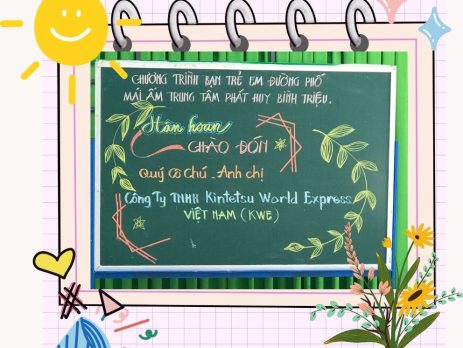 CHƯƠNG TRÌNH BẠN TRẺ EM ĐƯỜNG PHỐ
MÁI ẤM TRUNG TÂM PHÁT HUY BÌNH TRIỆU.
Hân hoan
CHÀO ĐÓN
Quý Cô Chú . Anh chị
Công Ty TNHH Kintetsu World Express
VIỆT NAM (KWE)